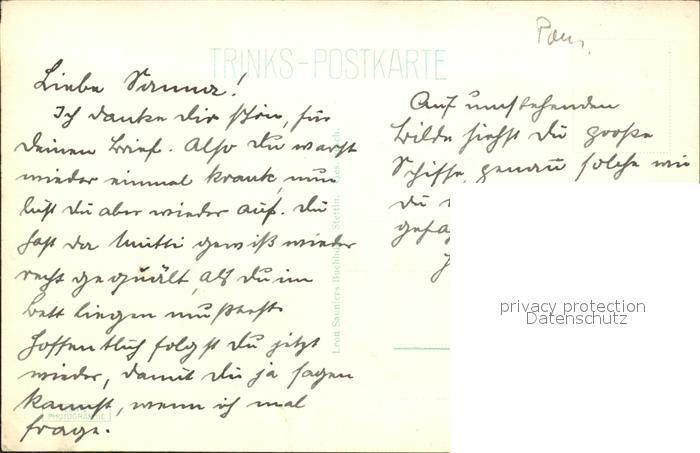 Pom.
TRINKS-POSTKARTE
Liebe Sanna!
Ich danke dir schön, für
deinen Brief. Also du warst
wieder einmal krank, nun
bist du aber wieder auf. Du
hast da Mutti gewiß wieder
recht gequält, als du im
Bett liegen mußtest.
Hoffentlich folgst du jetzt
wieder, damit du ja sagen
kannst, wenn ich mal
frage.
PHOTOGRAPHIE
Leon Sauniers Buchhandl. Stettin,
Auf umstehenden
Bilde siehst du große
Schiffe, genau solche wie
du
privacy protection
Datenschutz